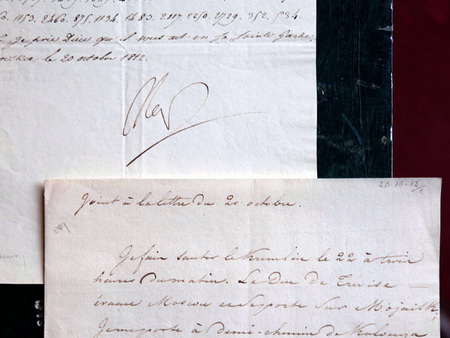 d. 1153. 2460. 875. 1134. 1483. 2117. 2250. 2729. 352. 534.
Je prie Dieu qu'il vous ait en sa Sainte Garde.
Moscou le 20 octobre 1812.
Nap
20-10-12/2
Joint à la lettre du 20 octobre.
Je fais sauter le Kremlin le 22 à trois
heures du matin. Le Duc de Trévise
évacue Moscou et se porte sur Mojaisk,
Je me porte à demi-chemin de Kalouga